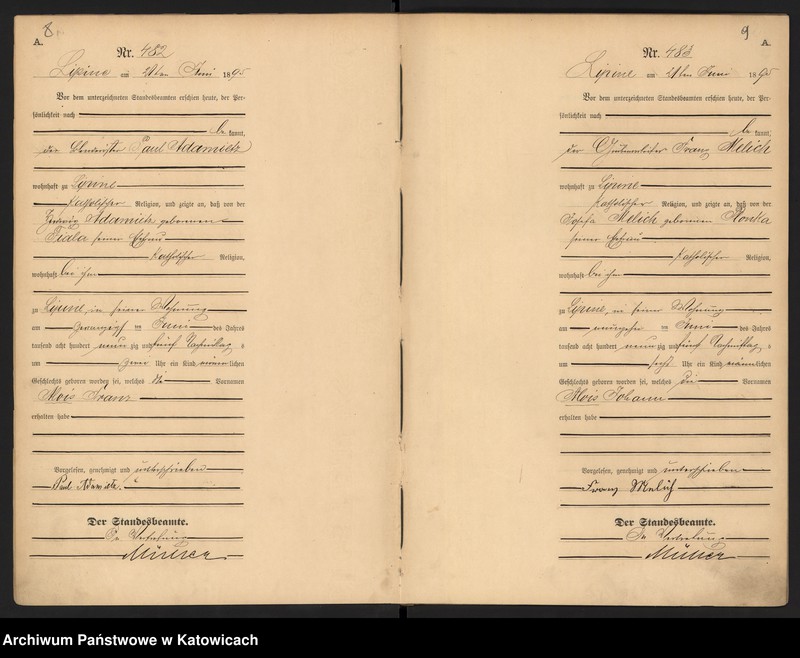 8.
A.
Nr. 482
Lipine am 21ten Juni 1895
Vor dem unterzeichneten Standesbeamten erschien heute, der Per-
sönlichkeit nach
be kannt,
der Paul Adamietz
wohnhaft zu Lipine
katholischer Religion, und zeigte an, daß von der
Hedwig Adamietz geborenen
Fiala seiner Ehefrau
katholischer Religion,
wohnhaft bei ihm
zu Lipine, in seiner Wohnung
am zwanzigsten Juni des Jahres
tausend acht hundert neun zig und fünf Nachmittags
um zwei Uhr ein Kind männlichen
Geschlechts geboren worden sei, welches die Vornamen
Alois Franz
erhalten habe
Vorgelesen, genehmigt und unterschrieben
Paul Adamietz.
Der Standesbeamte.
In Vertretung
Müller
9
A.
Nr. 483
Lipine am 21ten Juni 1895
Vor dem unterzeichneten Standesbeamten erschien heute, der Per-
sönlichkeit nach
be kannt,
der Grubenarbeiter Franz Melich
wohnhaft zu Lipine
katholischer Religion, und zeigte an, daß von der
Josefa Melich geborenen Stonka
seiner Ehefrau
katholischer Religion,
wohnhaft bei ihm
zu Lipine, in seiner Wohnung
am im Juni des Jahres
tausend acht hundert neun zig und fünf Nachmittags
um sechs Uhr ein Kind männlichen
Geschlechts geboren worden sei, welches die Vornamen
Alois Johann
erhalten habe
Vorgelesen, genehmigt und unterschrieben
Franz Melich
Der Standesbeamte.
In Vertretung
Müller
Archiwum Państwowe w Katowicach